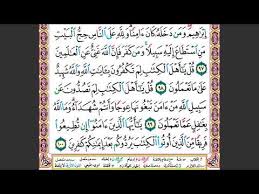 إِبْرَٰهِيمَ وَمَن دَخَلَهُ كَانَ ءَامِنًا وَلِلَّهِ عَلَى ٱلنَّاسِ حِجُّ ٱلْبَيْتِ
مَنِ ٱسْتَطَاعَ إِلَيْهِ سَبِيلًا وَمَن كَفَرَ فَإِنَّ ٱللَّهَ غَنِىٌّ عَنِ ٱلْعَٰلَمِينَ
٩٧ قُلْ يَٰٓأَهْلَ ٱلْكِتَٰبِ لِمَ تَكْفُرُونَ بِـَٔايَٰتِ ٱللَّهِ وَٱللَّهُ شَهِيدٌ
عَلَىٰ مَا تَعْمَلُونَ ٩٨ قُلْ يَٰٓأَهْلَ ٱلْكِتَٰبِ لِمَ تَصُدُّونَ عَن
سَبِيلِ ٱللَّهِ مَنْ ءَامَنَ تَبْغُونَهَا عِوَجًا وَأَنتُمْ شُهَدَآءُ وَمَا ٱللَّهُ
بِغَٰفِلٍ عَمَّا تَعْمَلُونَ ٩٩ يَٰٓأَيُّهَا ٱلَّذِينَ ءَامَنُوٓا۟ إِن تُطِيعُوا۟
فَرِيقًا مِّنَ ٱلَّذِينَ أُوتُوا۟ ٱلْكِتَٰبَ يَرُدُّوكُم بَعْدَ إِيمَٰنِكُمْ كَٰفِرِينَ ١٠٠